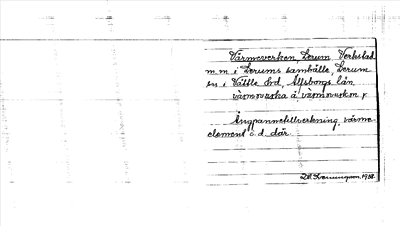 Värmeverken, Lerum, Verkstad
m.m. i Lerums samhälle, Lerum
sn i Vättle hd, Älfsborgs län
värmverska å, värmverskan,
Ångpannetillverkning, värme-
element o d där
1958